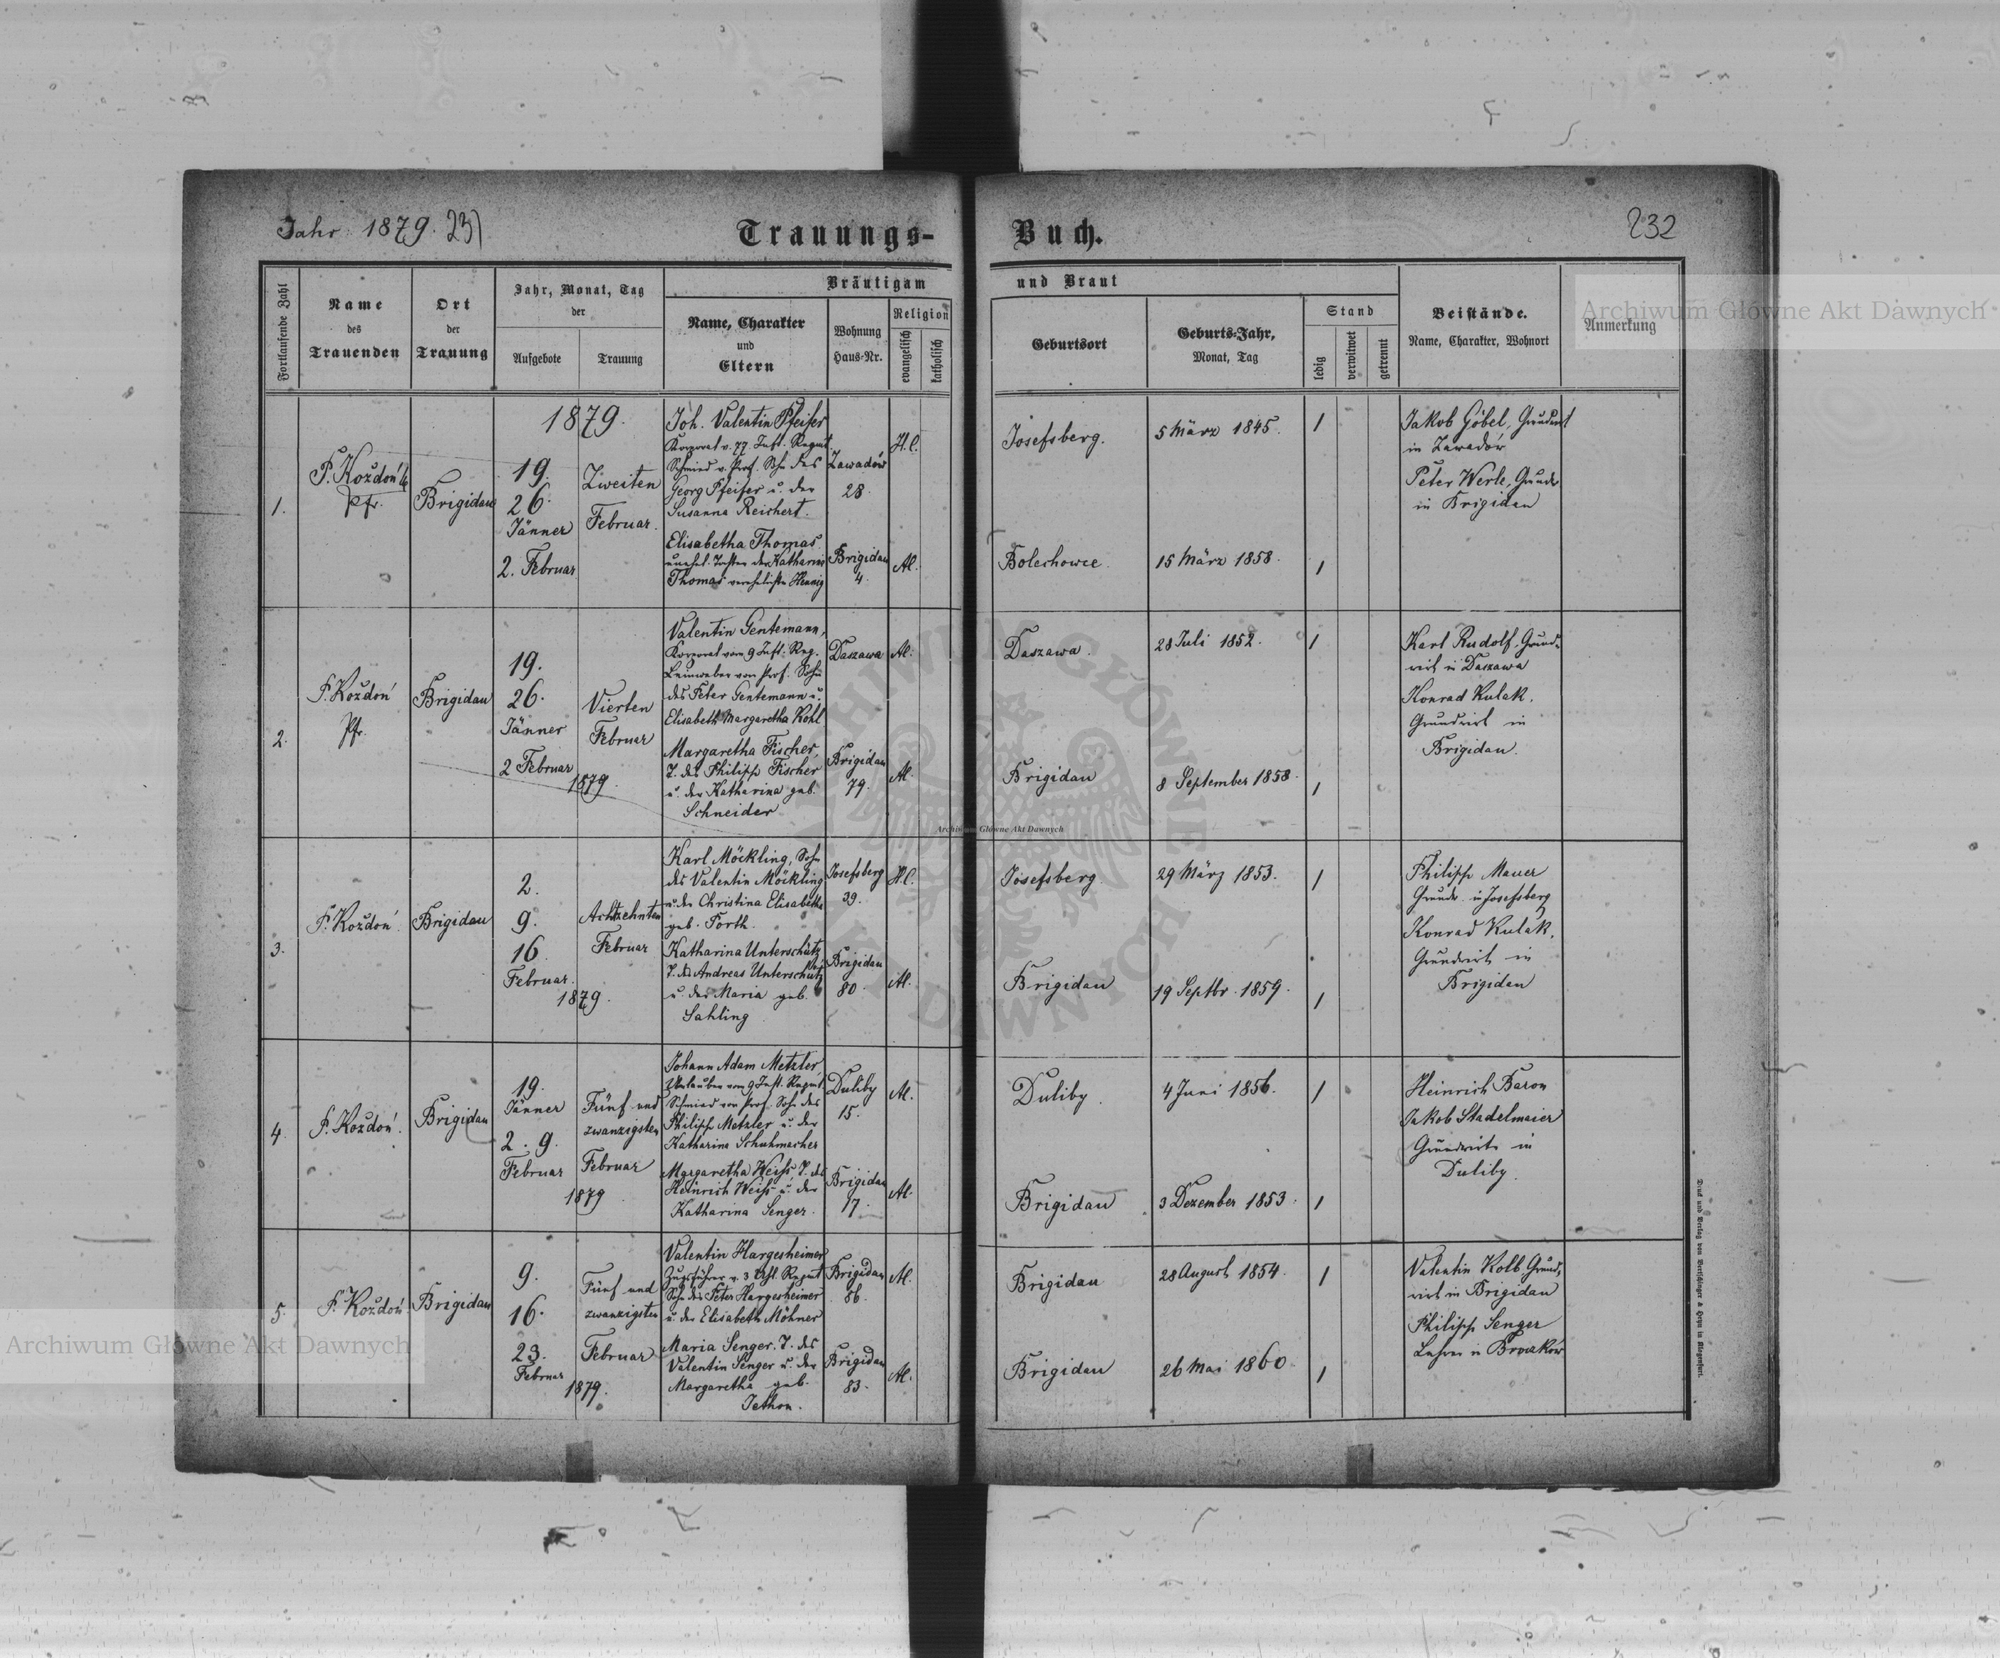 Jahr 1879. 231
Trauungs-
Buch.
232
Fortlaufende Zahl
Name
des
Trauenden
Ort
der
Trauung
Jahr, Monat, Tag
der
Aufgebote
Trauung
Bräutigam
Name, Charakter
und
Eltern
Wohnung
Haus-Nr.
Religion
evangelisch
katholisch
und Braut
Geburtsort
Geburts-Jahr,
Monat, Tag
Stand
ledig
verwitwet
getrennt
Beistände.
Name, Charakter, Wohnort
Anmerkung
1.
F. Koždoń
Pfr.
Brigidau
1879.
19.
26.
Jänner
2. Februar
Zweiten
Februar.
Joh. Valentin Pfeifer
Korporal v. 77 Inft. Regmt.
Schmied v. Prof. Sohn des
Georg Pfeifer u. der
Susanna Reichert.
Zawadów
28.
H.C.
Elisabetha Thomas
unehel. Tochter der Katharina
Thomas verehelichte Hennig
Brigidau
4.
Al.
Josefsberg.
5 März 1845.
1
Bolechowce.
15 März 1858.
1
Jakob Göbel, Grundwirt
in Zawadów
Peter Werle, Grundw
in Brigidau
2.
F. Koždoń
Pfr.
Brigidau
19.
26.
Jänner
2 Februar
1879.
Vierten
Februar
Valentin Gentemann,
Korporal vom 9 Inft. Reg.
Leinweber von Prof. Sohn
des Peter Gentemann u.
Elisabeth Margaretha Kohl
Daszawa
Al.
Margaretha Fischer,
T. des Philipp Fischer
u. der Katharina geb.
Schneider
Brigidau
79.
Al.
Daszawa.
28 Juli 1852.
1
Brigidau
8 September 1858.
1
Karl Rudolf, Grund-
wirt in Daszawa
Konrad Kulak,
Grundwirt in
Brigidau.
3.
F. Koždoń.
Brigidau
2.
9.
16.
Februar.
1879.
Achtzehnten
Februar
Karl Möckling, Sohn
des Valentin Möckling
u. der Christina Elisabetha
geb. Forth.
Josefsberg
39.
H.C.
Katharina Unterschütz,
T. des Andreas Unterschütz
u. der Maria geb.
Sahling
Brigidau
80.
Al.
Josefsberg.
29 März 1853.
1
Brigidau
19 Septbr. 1859.
1
Philipp Mauer
Grundw. in Josefsberg
Konrad Kulak,
Grundwirt in
Brigidau
4.
F. Koždoń.
Brigidau
19.
Jänner
2. 9.
Februar
1879
Fünf und
zwanzigsten
Februar
Johann Adam Metzler
Urlauber vom 9 Inft. Regmt
Schmied von Prof. Sohn des
Philipp Metzler u. der
Katharina Schuhmacher
Duliby
15.
Al.
Margaretha Weiss T. des
Heinrich Weiss u. der
Katharina Senger.
Brigidau
17.
Al.
Duliby.
4 Juni 1856.
1
Brigidau
3 Dezember 1853.
1
Heinrich Baron
Jakob Stadelmaier
Grundwirte in
Duliby.
5.
F. Koždoń.
Brigidau
9.
16.
23.
Februar
1879.
Fünf und
zwanzigsten
Februar
Valentin Hargesheimer
Zugsführer v. 3 Regmt
Sohn des Peter Hargesheimer
u. der Elisabeth Möhner
Brigidau
86.
Al.
Maria Senger, T. des
Valentin Senger u. der
Margaretha geb.
Jethon.
Brigidau
83.
Al.
Brigidau
28 August 1854.
1
Brigidau
26 Mai 1860.
1
Valentin Kolb Grund-
wirt in Brigidau
Philipp Senger
Lehrer in
Druck und Verlag von Bertschinger & Heyn in Klagenfurt.
Archiwum Główne Akt Dawnych
Archiwum Główne Akt Dawnych
Archiwum Główne Akt Dawnych
ARCHIWUM GŁÓWNE AKT DAWNYCH